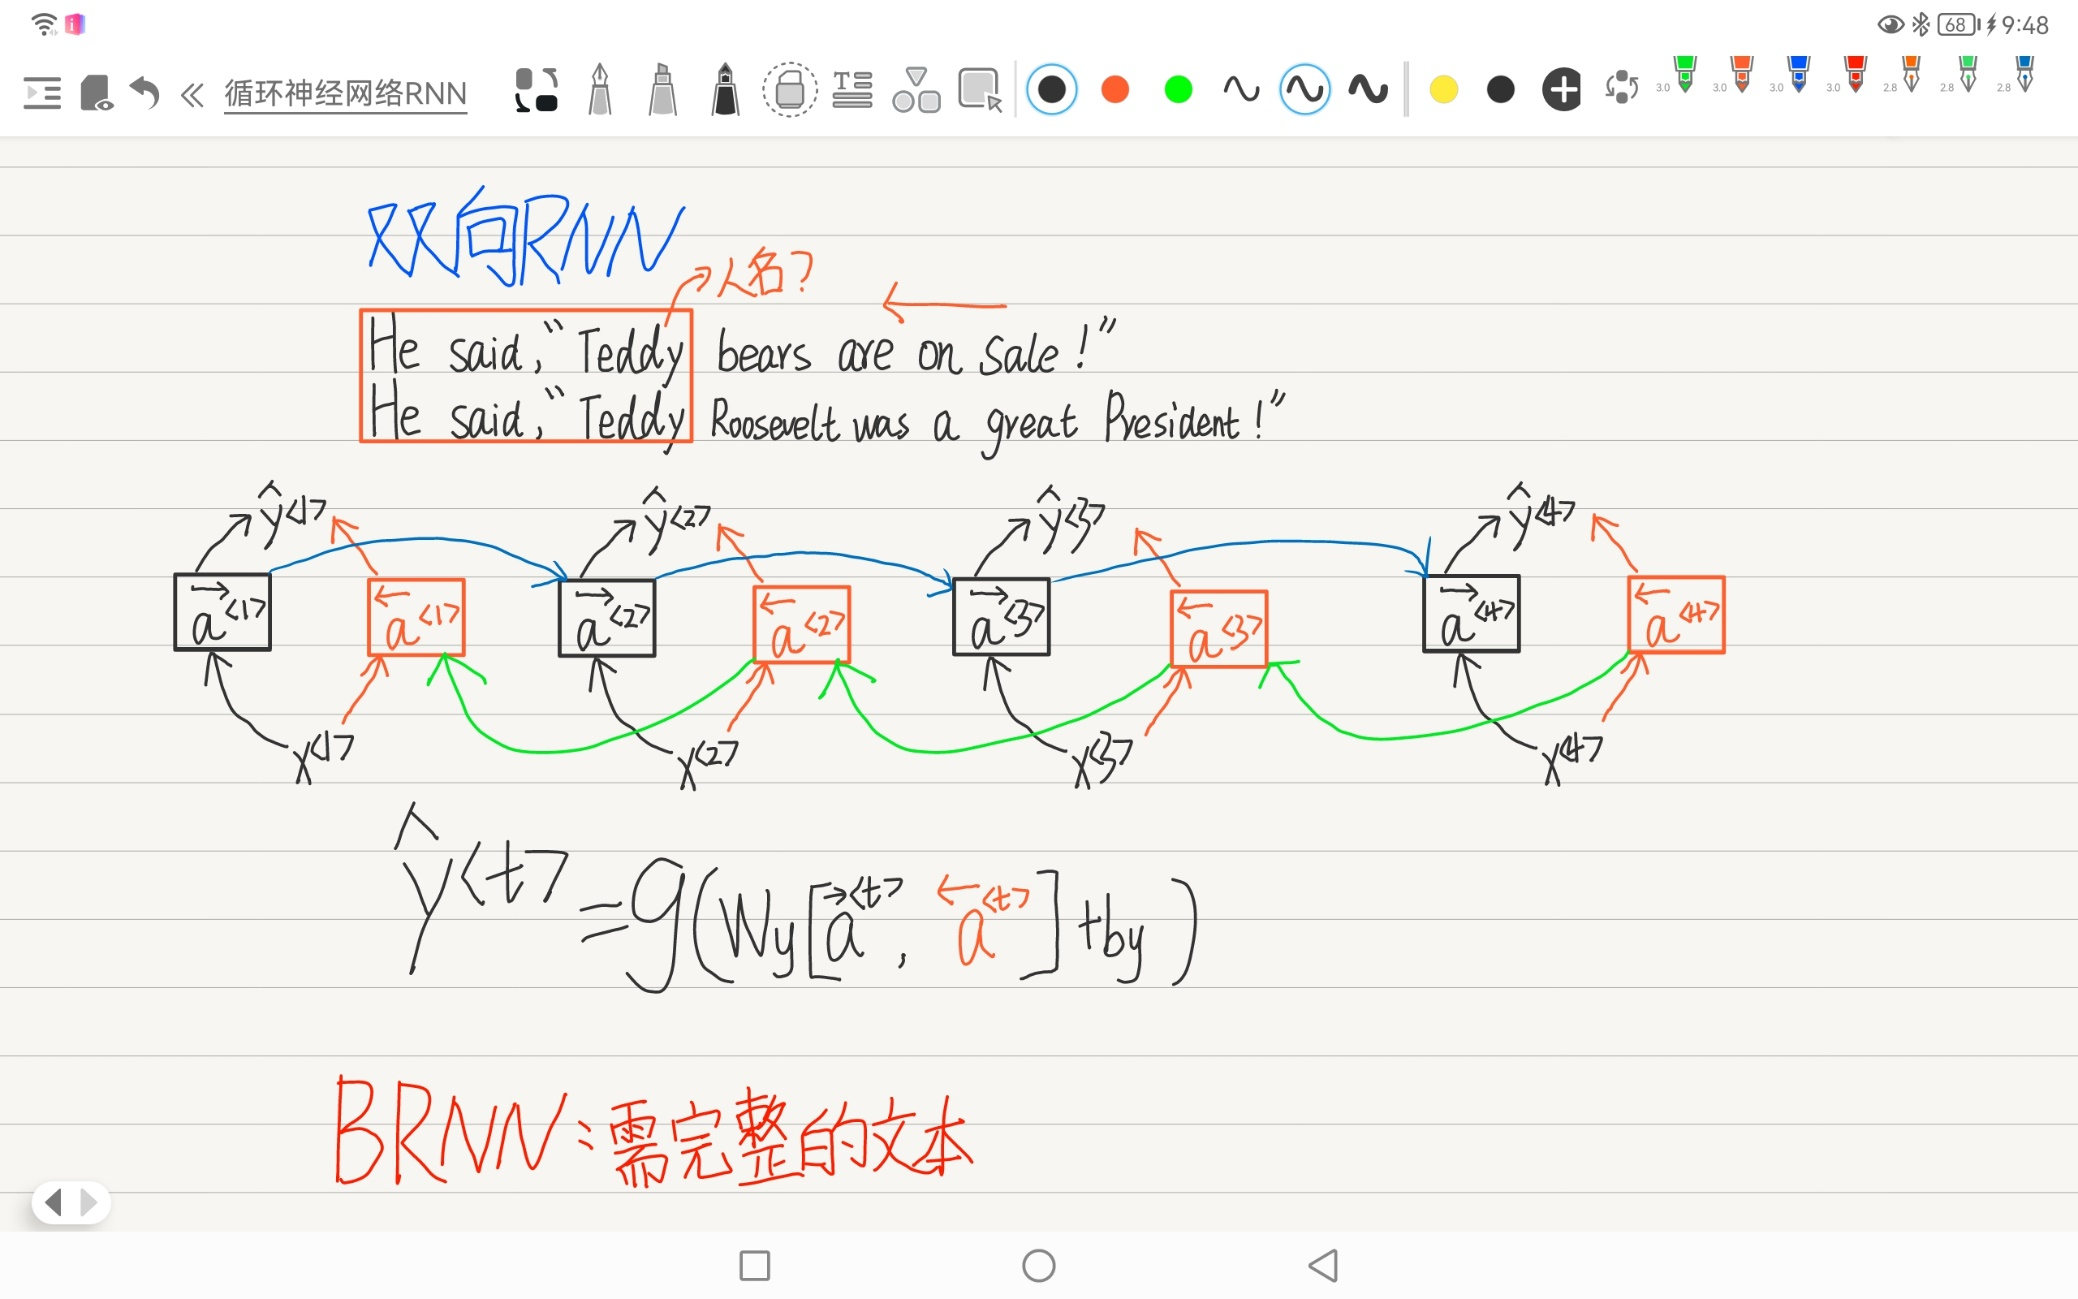 68 9:48
循环神经网络RNN
3.0 3.0 3.0 3.0 2.8 2.8 2.8
双向RNN
人名?
He said, "Teddy bears are on sale!"
He said, "Teddy Roosevelt was a great President!"
ŷ<1> ŷ<2> ŷ<3> ŷ<4>
→a<1> ←a<1> →a<2> ←a<2> →a<3> ←a<3> →a<4> ←a<4>
x<1> x<2> x<3> x<4>
ŷ<t> = g(Wy[→a<t>, ←a<t>] + by)
BRNN:需完整的文本